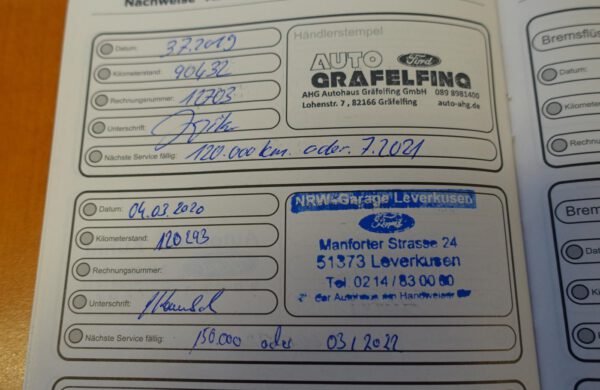 Nachweise
Datum: 3.7.2019
Kilometerstand: 90432
Rechnungsnummer: 12703
Unterschrift:
Nächste Service fällig: 120.000 km. oder. 7.2021
Händlerstempel
AUTO Ford
GRÄFELFING
AHG Autohaus Gräfelfing GmbH 089 8981400
Lohenstr. 7 , 82166 Gräfelfing auto-ahg.de
Datum: 04.03.2020
Kilometerstand: 120293
Rechnungsnummer:
Unterschrift:
Nächste Service fällig: 150.000 oder 03/2022
NRW-Garage Leverkusen
Ford
Manforter Strasse 24
51373 Leverkusen
Tel. 0214/83 00 60
der Autohaus am Handweiser
Bremsflüs
Datum:
Kilometer
Rechnu
Brem
Dat
Ki